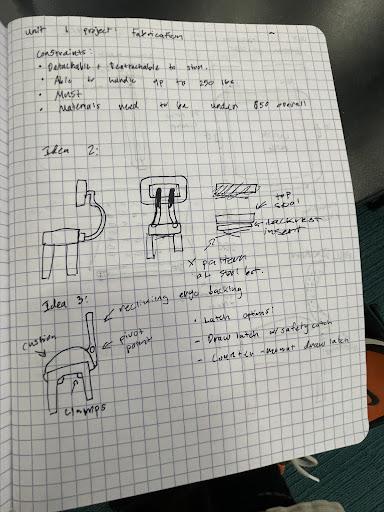 unit 6 project: fabrication
Constraints:
• Detachable + Reattachable to stool.
• Able to handle up to 250 lbs.
• Must
• Materials need to be under $50 overall
Idea 2:
top
stool
backrest
insert
X pattern
at stool bot.
Idea 3:
reclining ergo backing
cushion
pivot
point
• Latch options:
- Draw latch w/ safety catch
- Counter-mount draw latch
clamps